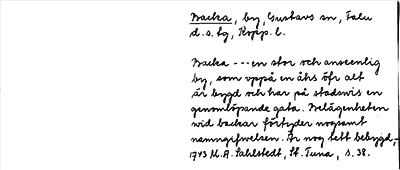 Backa, by, Gustavs sn, Falu
d.s. tg, Kopp. l.
Backa --- en stor och anseenlig
by, som uppå en åhs öfr alt
är bygd och har på stadswis en
genomlöpande gata. Belägenheten
wid backar förtyder nogsamt
namngifwelsen. Är nog tett bebygd,-
1743 M.A. Sahlstedt, St. Tuna, s. 38.